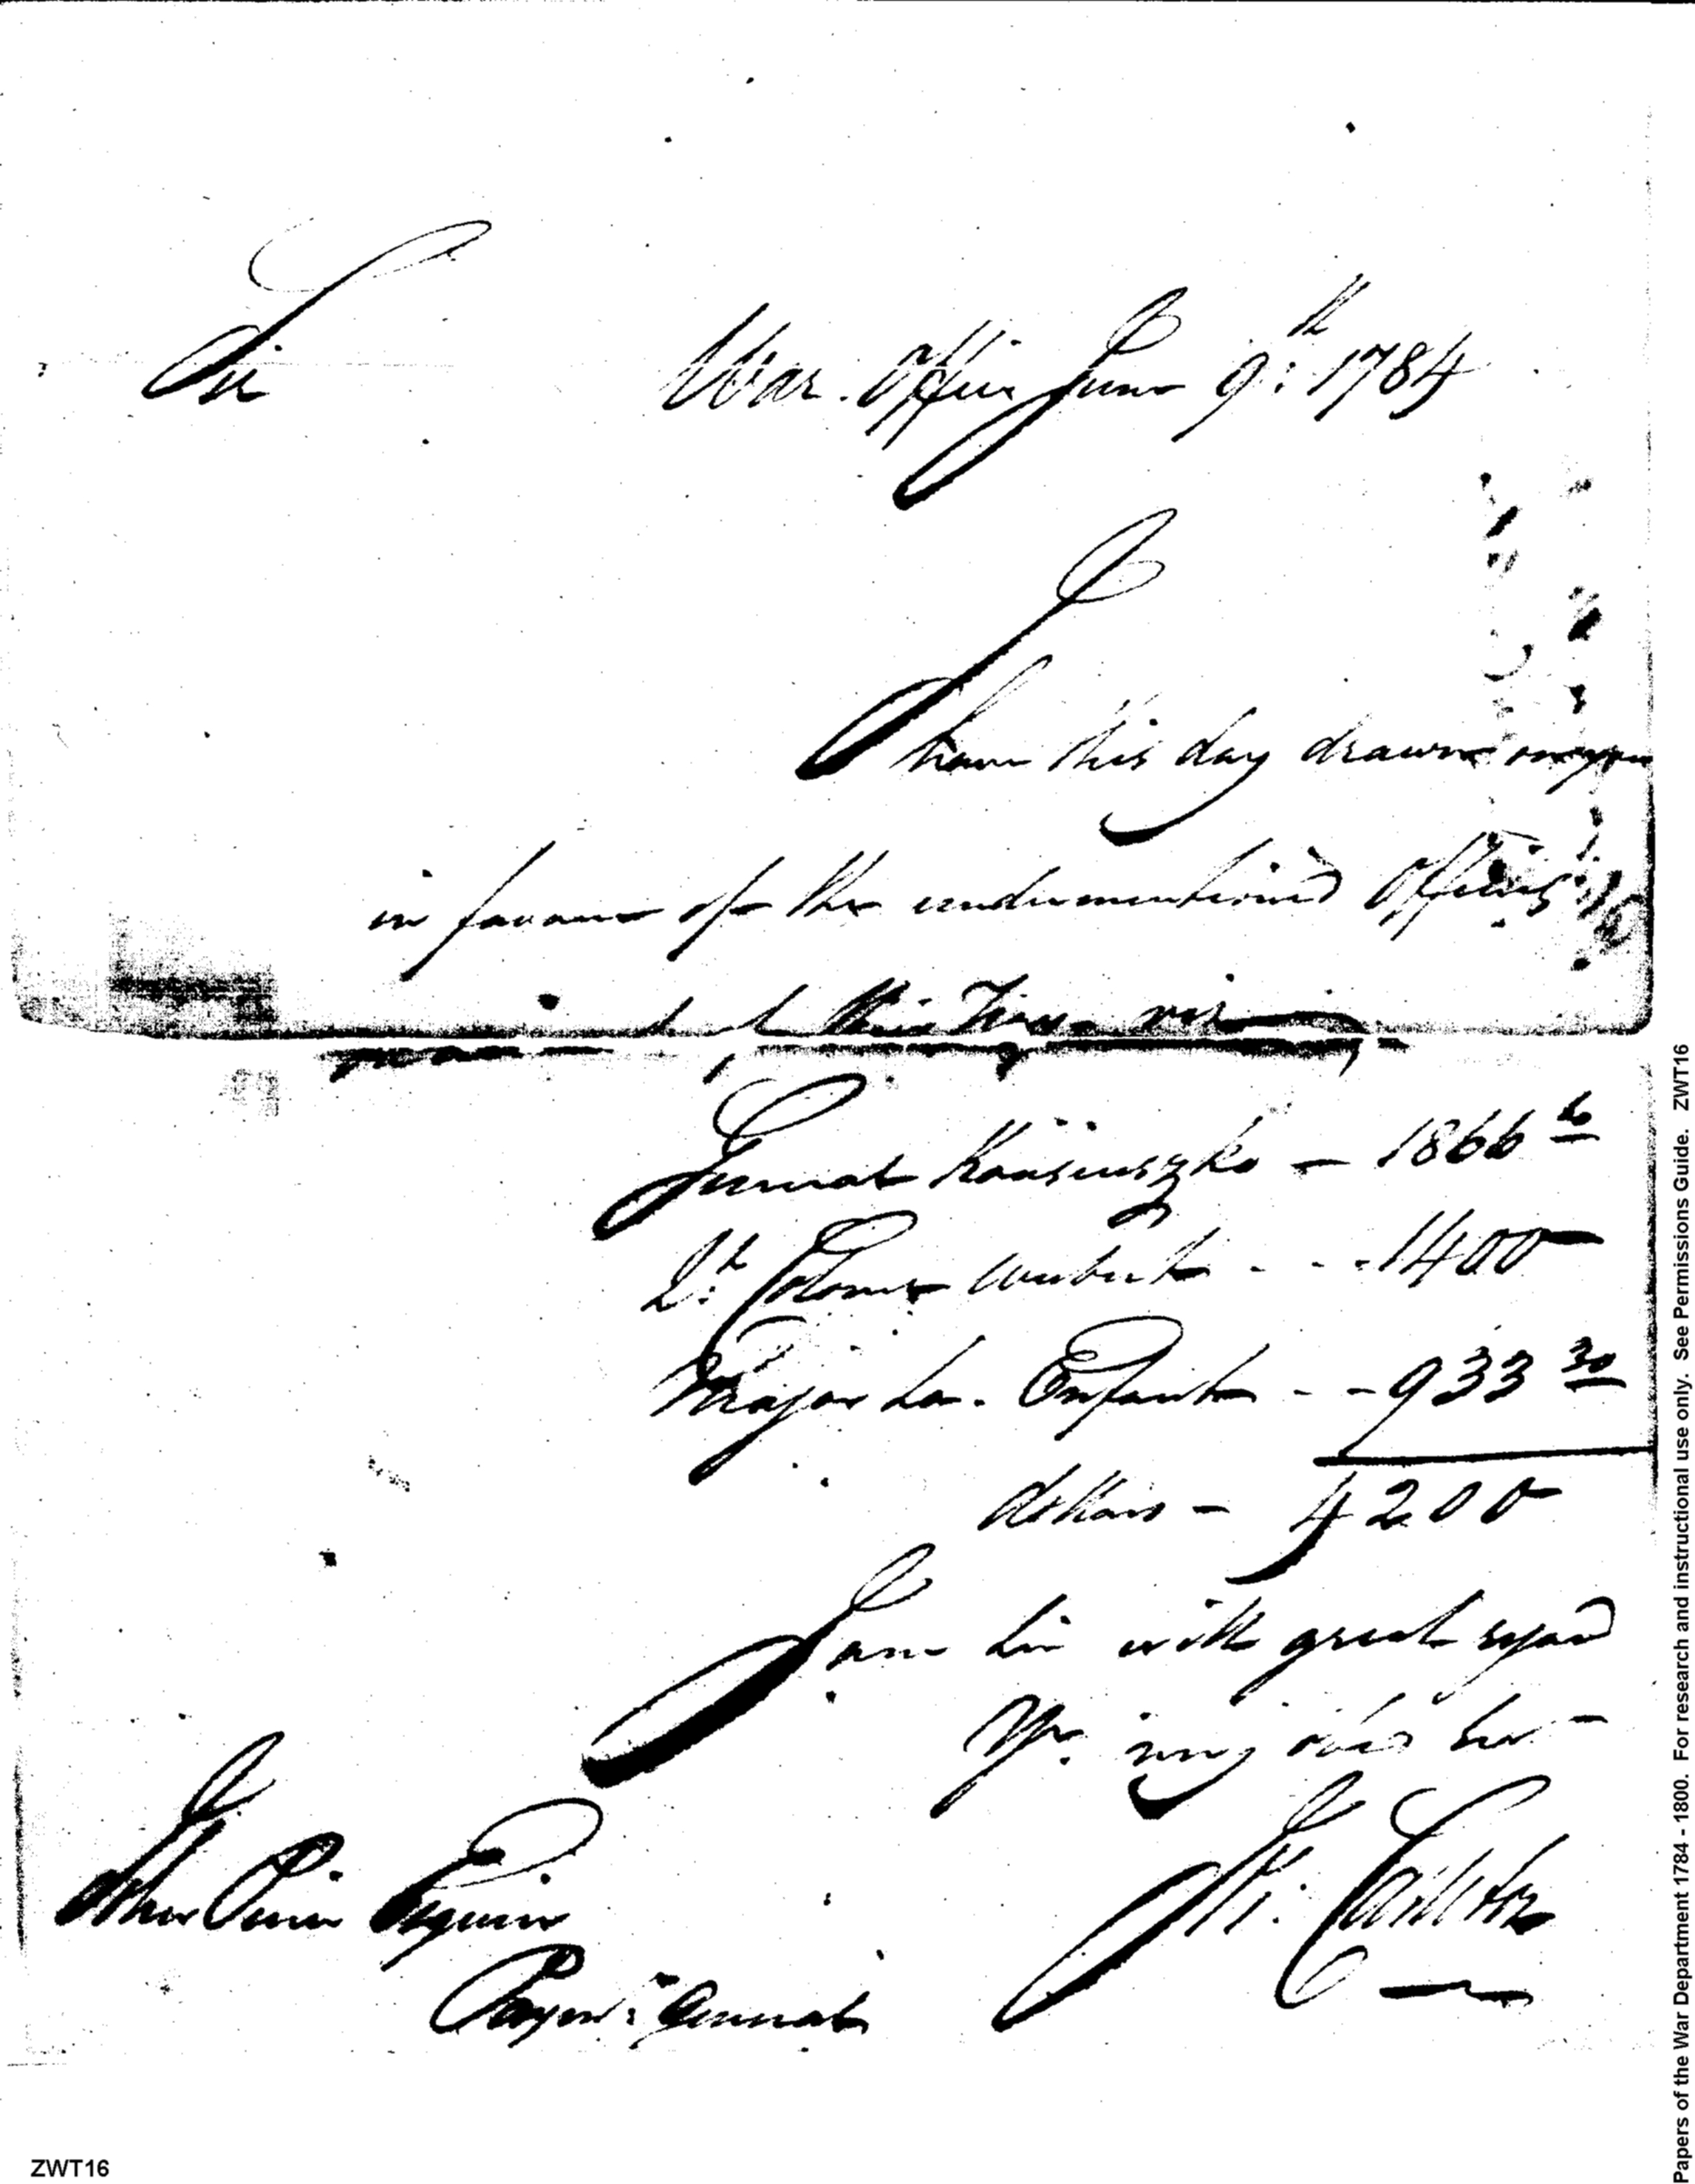 Sir
War. Office June 9th: 1784
I
have this day drawn on you
in favour of the undermentioned Officers
viz
General Kousiuszko – 1866 60
Lt: Colonel Weibert - - - 1400
Major La. Enfant - - 933 30
dollars – 4200
I am Sir with great regard
Yr.
Js: Carleton
John Pierce Esquire
Paymr: General
ZWT16
Papers of the War Department 1784 - 1800. For research and instructional use only. See Permissions Guide. ZWT16